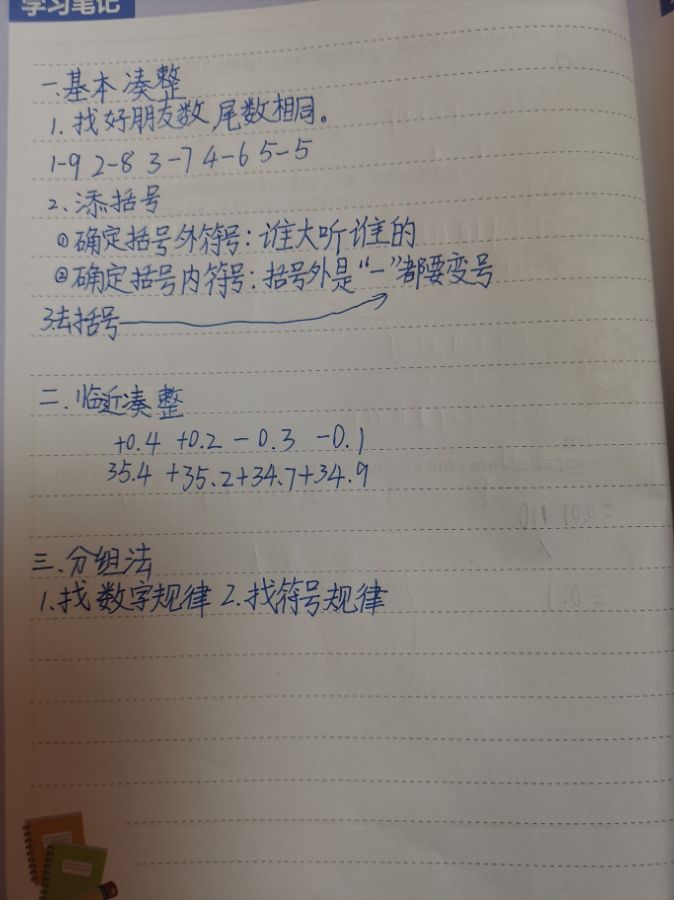 学习笔记
一.基本凑整
1.找好朋友数,尾数相同。
1-9 2-8 3-7 4-6 5-5
2、添括号
①确定括号外符号:谁大听谁的
②确定括号内符号:括号外是“-”都要变号
3.去括号
二.临近凑整
+0.4 +0.2 -0.3 -0.1
35.4+35.2+34.7+34.9
三.分组法
1.找数字规律 2.找符号规律